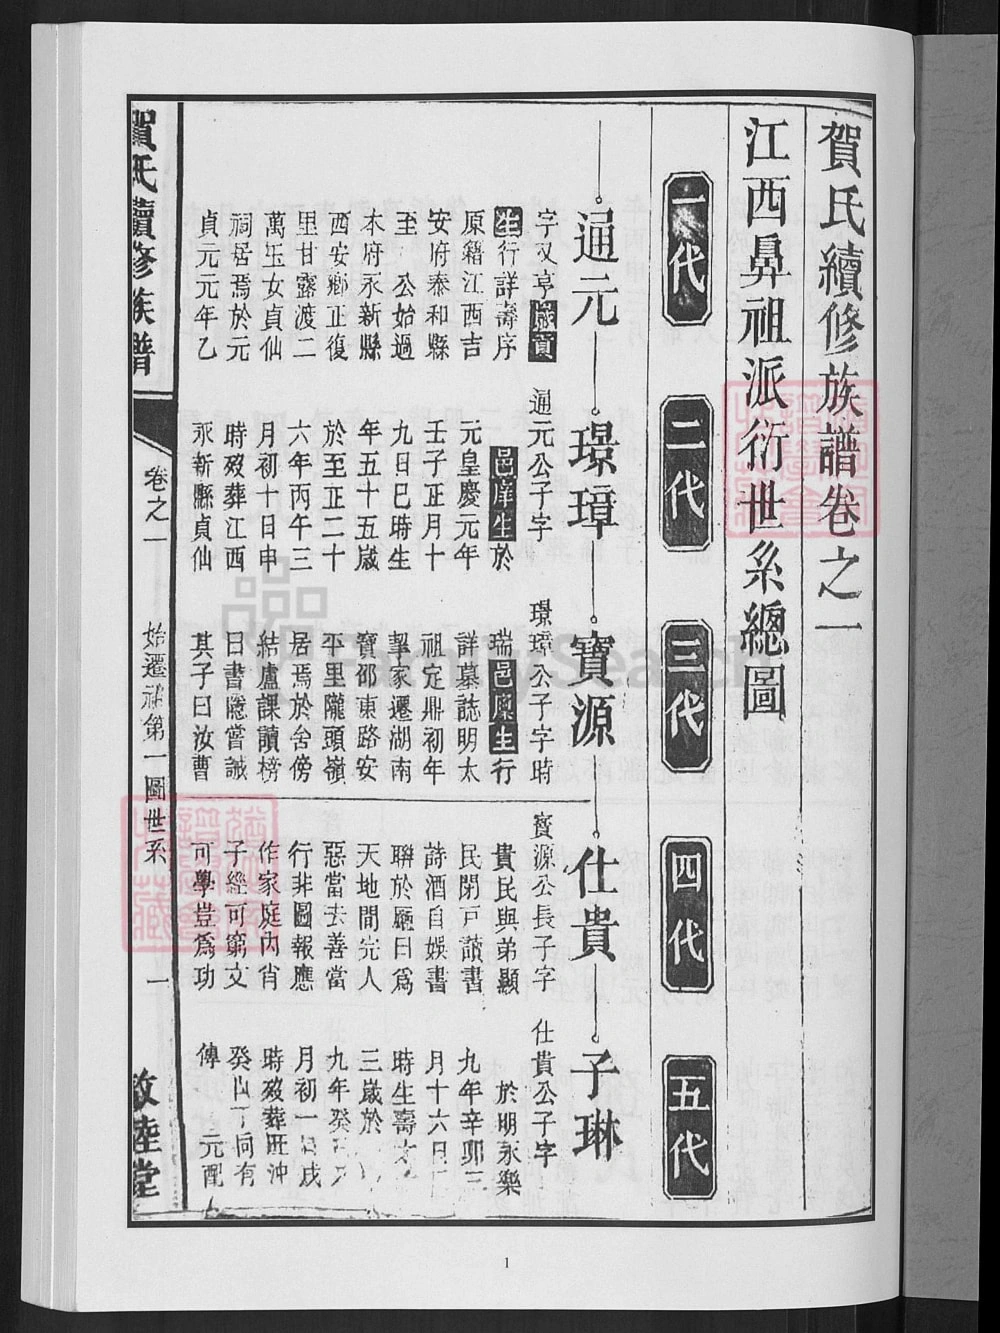 賀氏續修族譜卷之一
江西鼻祖派衍世系總圖
一代
二代
三代
四代
五代
通元
字汉亨歲貢
生行詳壽序
原籍江西吉
安府泰和縣
至 公始過
本府永新縣
西安鄉正復
里甘露渡二
萬玉女貞仙
祠居焉於元
貞元元年乙
璟璋
通元公子字
邑庠生於
元皇慶元年
壬子正月十
九日巳時生
年五十五歲
於至正二十
六年丙午三
月初十日申
時歿葬江西
永新縣貞仙
寶源
璟璋公子字時
瑞邑廩生行
詳墓誌明太
祖定鼎初年
挈家遷湖南
寶邵東路安
平里隴頭嶺
居焉於舍傍
結廬課讀榜
曰書隱嘗誡
其子曰汝曹
仕貴
寶源公長子字
貴民與弟顯
民閉戸讀書
詩酒自娛書
聯於廳曰爲
天地間完人
惡當去善當
行非圖報應
作家庭內肖
子經可窮文
可學豈爲功
子琳
仕貴公子字
於明永樂
九年辛卯三
月十六日
時生壽
三歲於
九年癸
月初一 戌
時歿葬旺沖
癸山丁 同有
傳 元配
賀氏續修族譜
卷之一
始遷 第一圖世系
一
敦睦堂
FamilySearch
1